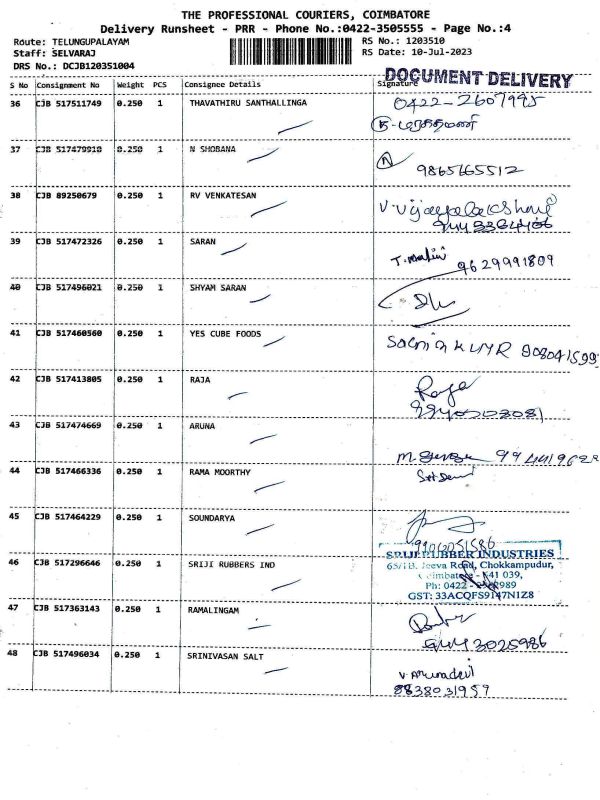 THE PROFESSIONAL COURIERS, COIMBATORE
Delivery Runsheet - PRR - Phone No.:0422-3505555 - Page No.:4
Route: TELUNGUPALAYAM RS No.: 1203510
Staff: SELVARAJ RS Date: 10-Jul-2023
DRS No.: DCJB120351004
DOCUMENT DELIVERY
S No Consignment No Weight PCS Consignee Details Signature
36 CJB 517511749 0.250 1 THAVATHIRU SANTHALLINGA 0422-2607995
37 CJB 517479910 0.250 1 N SHOBANA
9865765512
38 CJB 89250679 0.250 1 RV VENKATESAN
39 CJB 517472326 0.250 1 SARAN
9629991809
40 CJB 517496021 0.250 1 SHYAM SARAN
41 CJB 517460560 0.250 1 YES CUBE FOODS
42 CJB 517413805 0.250 1 RAJA Raja
43 CJB 517474669 0.250 1 ARUNA
44 CJB 517466336 0.250 1 RAMA MOORTHY
45 CJB 517464229 0.250 1 SOUNDARYA
SRIJI RUBBER INDUSTRIES
46 CJB 517296646 0.250 1 SRIJI RUBBERS IND 65/1B, Jeeva Road, Chokkampudur,
Coimbatore - 641 039,
Ph: 0422
GST: 33ACQFS9147N1Z8
47 CJB 517363143 0.250 1 RAMALINGAM
48 CJB 517496034 0.250 1 SRINIVASAN SALT V. Arunadevi
8838031959